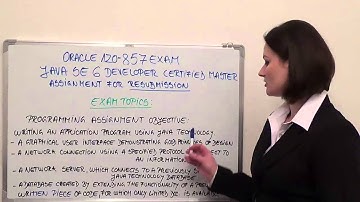 ORACLE 120-857 EXAM
JAVA SE 6 DEVELOPER CERTIFIED MASTER
ASSIGNMENT FOR RESUBMISSION
EXAM TOPICS:
PROGRAMMING ASSIGNMENT OBJECTIVE:
WRITING AN APPLICATION PROGRAM USING JAVA TECHNOLOGY
- A GRAPHICAL USER INTERFACE DEMONSTRATING GOOD PRINCIPLES OF DESIGN
- A NETWORK CONNECTION USING A SPECIFIED PROTOCOL TO CONNECT TO
AN INFORMATION
- A NETWORK SERVER, WHICH CONNECTS TO A PREVIOUSLY
JAVA TECHNOLOGY DATABASE
- A DATABASE CREATED BY EXTENDING THE FUNCTIONALITY OF A
WRITTEN PIECE OF CODE, FOR WHICH ONLY LIMITED DOC. IS AVAILABLE